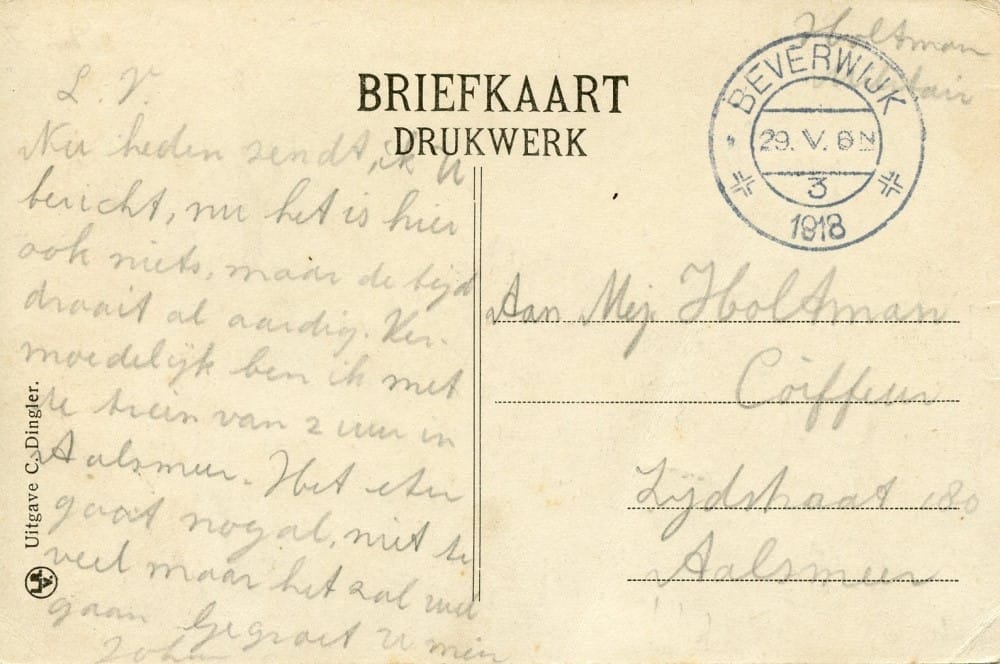 L. V.
Nu heden zendt ik U
bericht, nu het is hier
ook niets, maar de tijd
draait al aardig. Ver-
moedelijk ben ik met
de trein van 2 uur in
Aalsmeer. Het eten
gaat nogal, niet te
veel maar het zal wel
gaan Gegroet U mijn
Johan
Uitgave C. Dingler.
BRIEFKAART
DRUKWERK
Holtman
BEVERWIJK
29. V. 6 N
3
1918
Aan Mej Holtman
Coiffeur
Zijdstraat 180
Aalsmeer